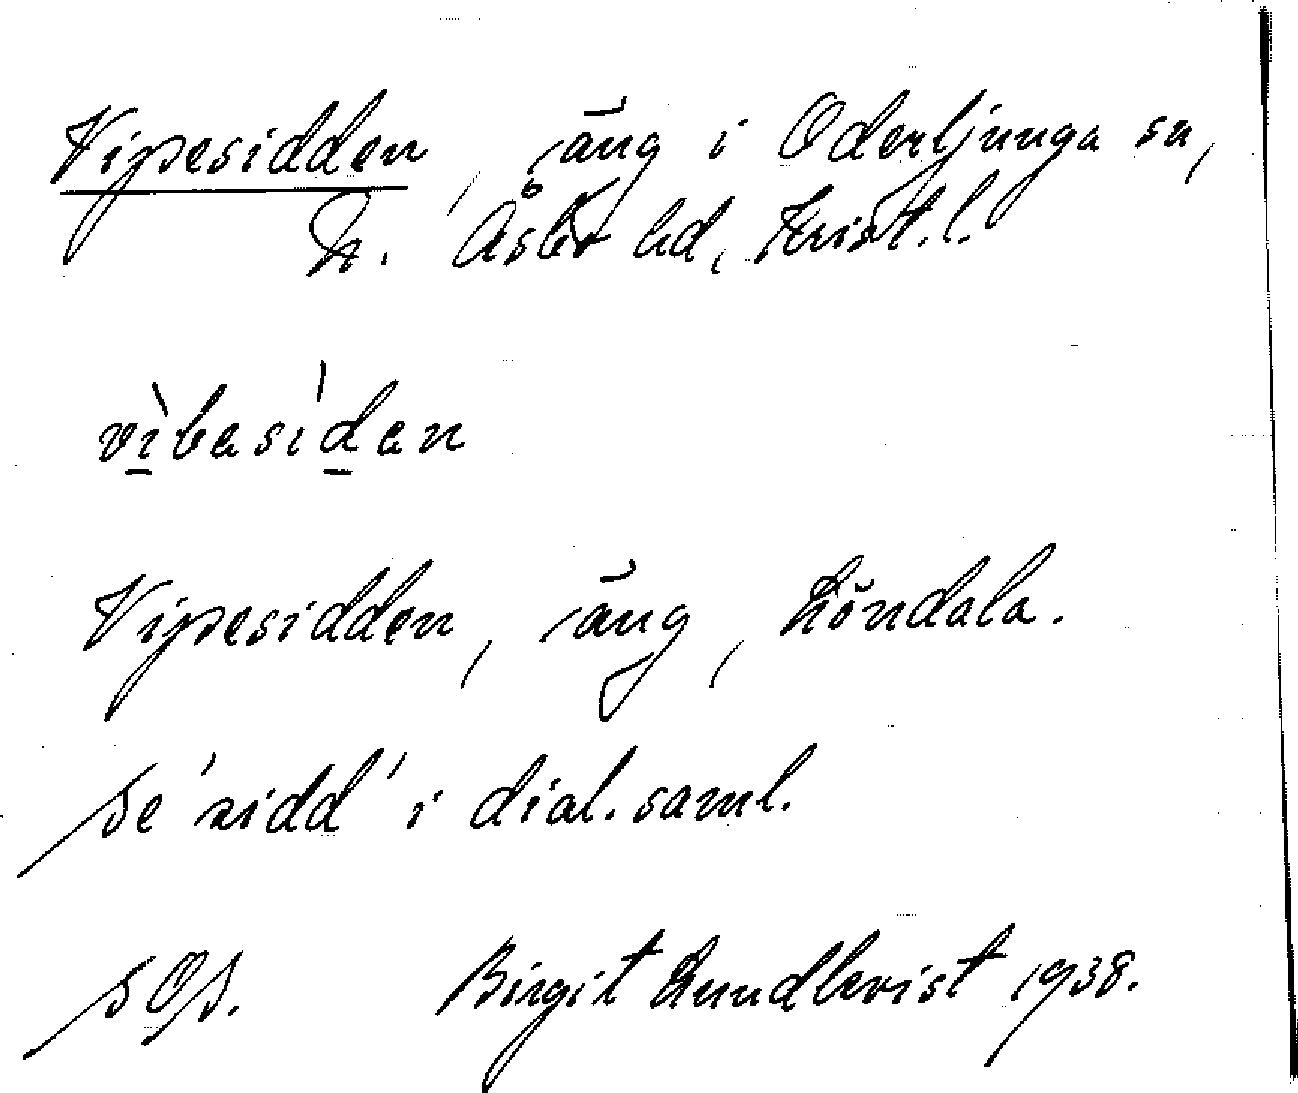 Vipesidden, äng i Oderljunga sn,
N. Åsbo hd, Krist.l.
vìbasi̍dan
Vipesidden, äng, Löndala.
Se 'sidd' i dial.saml.
SOS. Birgit Lundkvist 1938.